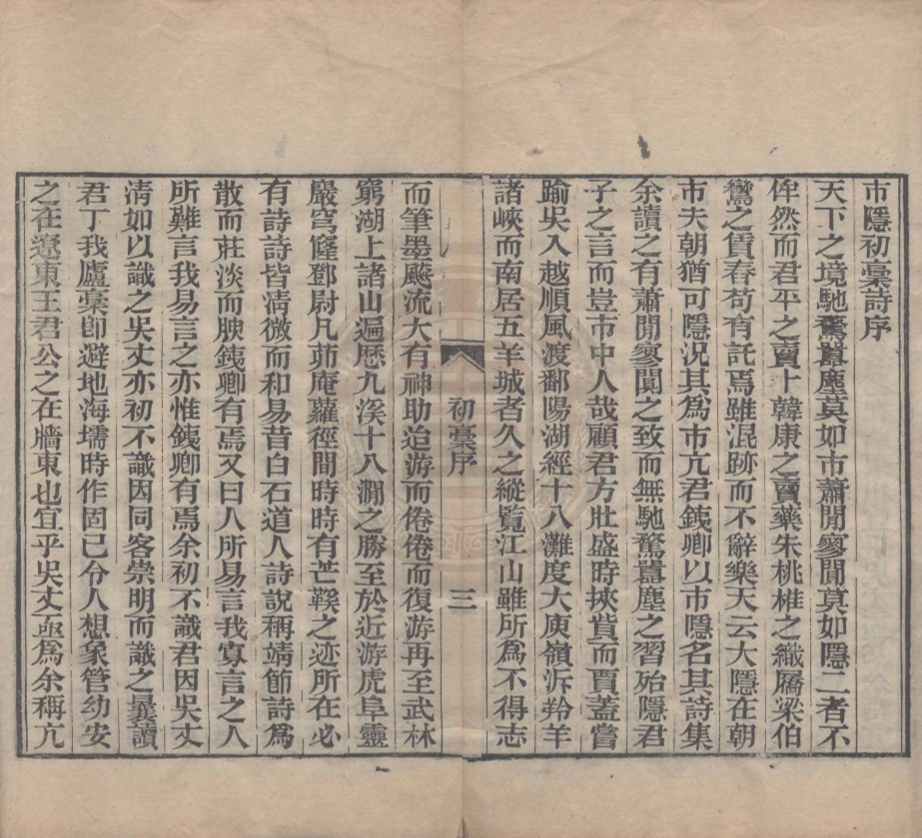 市隱初稾詩序
天下之境馳騖囂塵莫如市蕭閒寥闃莫如隱二者不
侔然而君平之賣卜韓康之賣藥朱桃椎之織屩梁伯
鸞之賃舂苟有託焉雖混跡而不辭樂天云大隱在朝
市夫朝猶可隱況其爲市亢君銕卿以市隱名其詩集
余讀之有蕭閒寥闃之致而無馳騖囂塵之習殆隱君
子之言而豈市中人哉顧君方壯盛時挾貲而賈蓋嘗
踰吳入越順風渡鄱陽湖經十八灘度大庾嶺泝羚羊
諸峽而南居五羊城者久之縱覽江山雖所爲不得志
初稾序
三
而筆墨飈流大有神助迨游而倦倦而復游再至武林
窮湖上諸山遍歷九溪十八澗之勝至於近游虎阜靈
巖穹窿鄧尉凡茆庵蘿徑間時時有芒鞵之迹所在必
有詩詩皆淸微而和易昔白石道人詩說稱靖節詩爲
散而莊淡而腴銕卿有焉又曰人所易言我寡言之人
所難言我易言之亦惟銕卿有焉余初不識君因吳丈
淸如以識之吳丈亦初不識因同客崇明而識之曩讀
君丁我廬稾卽避地海壖時作固已令人想象管幼安
之在遼東王君公之在牆東也宜乎吳丈亟爲余稱亢